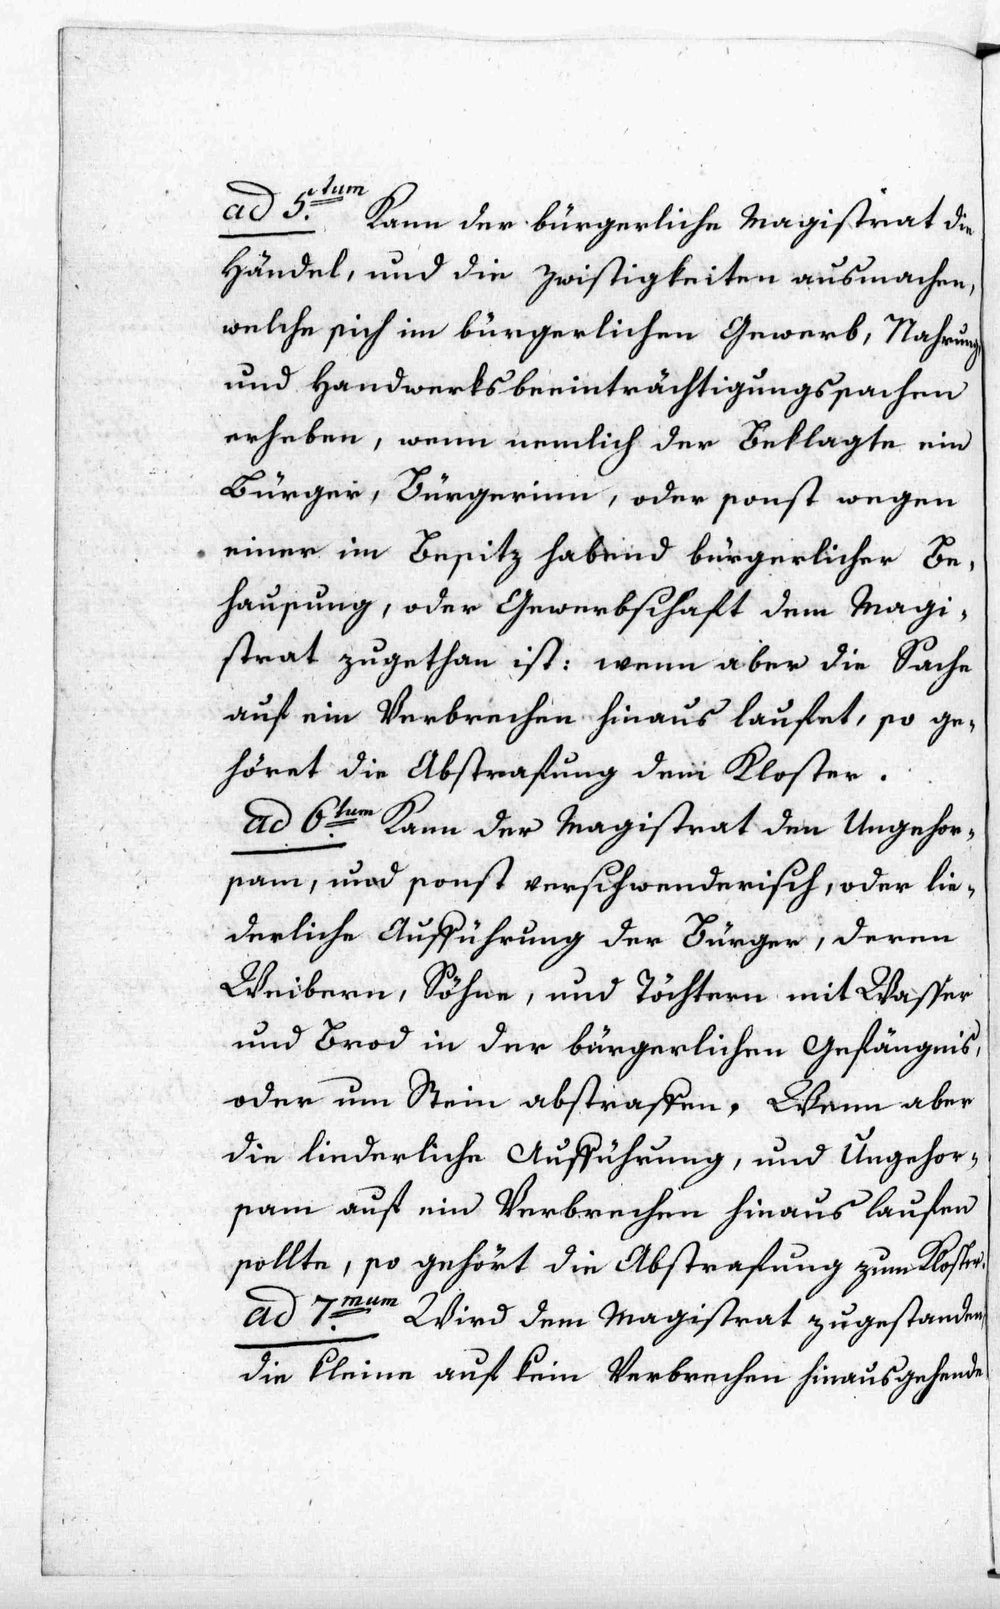 ad 5.tum Kann der bürgerliche Magistrat die
Händel, und die Zwistigkeiten ausmachen,
welche sich im bürgerlichen Gewerb, Nahrung,
und Handwerksbeeinträchtigungssachen
erheben, wenn nemlich der Beklagte ein
Bürger, Bürgerinn, oder sonst wegen
einer im Besitz habend bürgerlicher Be-
hausung, oder Gewerbschaft dem Magi-
strat zugethan ist: wenn aber die Sache
auf ein Verbrechen hinaus laufet, so ge-
höret die Abstrafung dem Kloster.
ad 6.tum Kann der Magistrat den Ungehor-
sam, und sonst verschwenderisch, oder lie-
derliche Aufführung der Bürger, deren
Weibern, Söhne, und Töchtern mit Wasser
und Brod in der bürgerlichen Gefängnis,
oder um Stein abstraffen. Wenn aber
die liederliche Aufführung, und Ungehor-
sam auf ein Verbrechen hinaus laufen
sollte, so gehört die Abstrafung zum Kloster.
ad 7.mum Wird dem Magistrat zugestanden,
die kleine auf kein Verbrechen hinausgehende